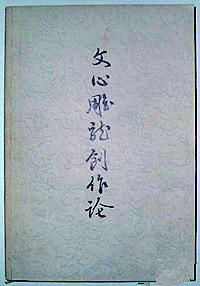 文心雕龍創作论